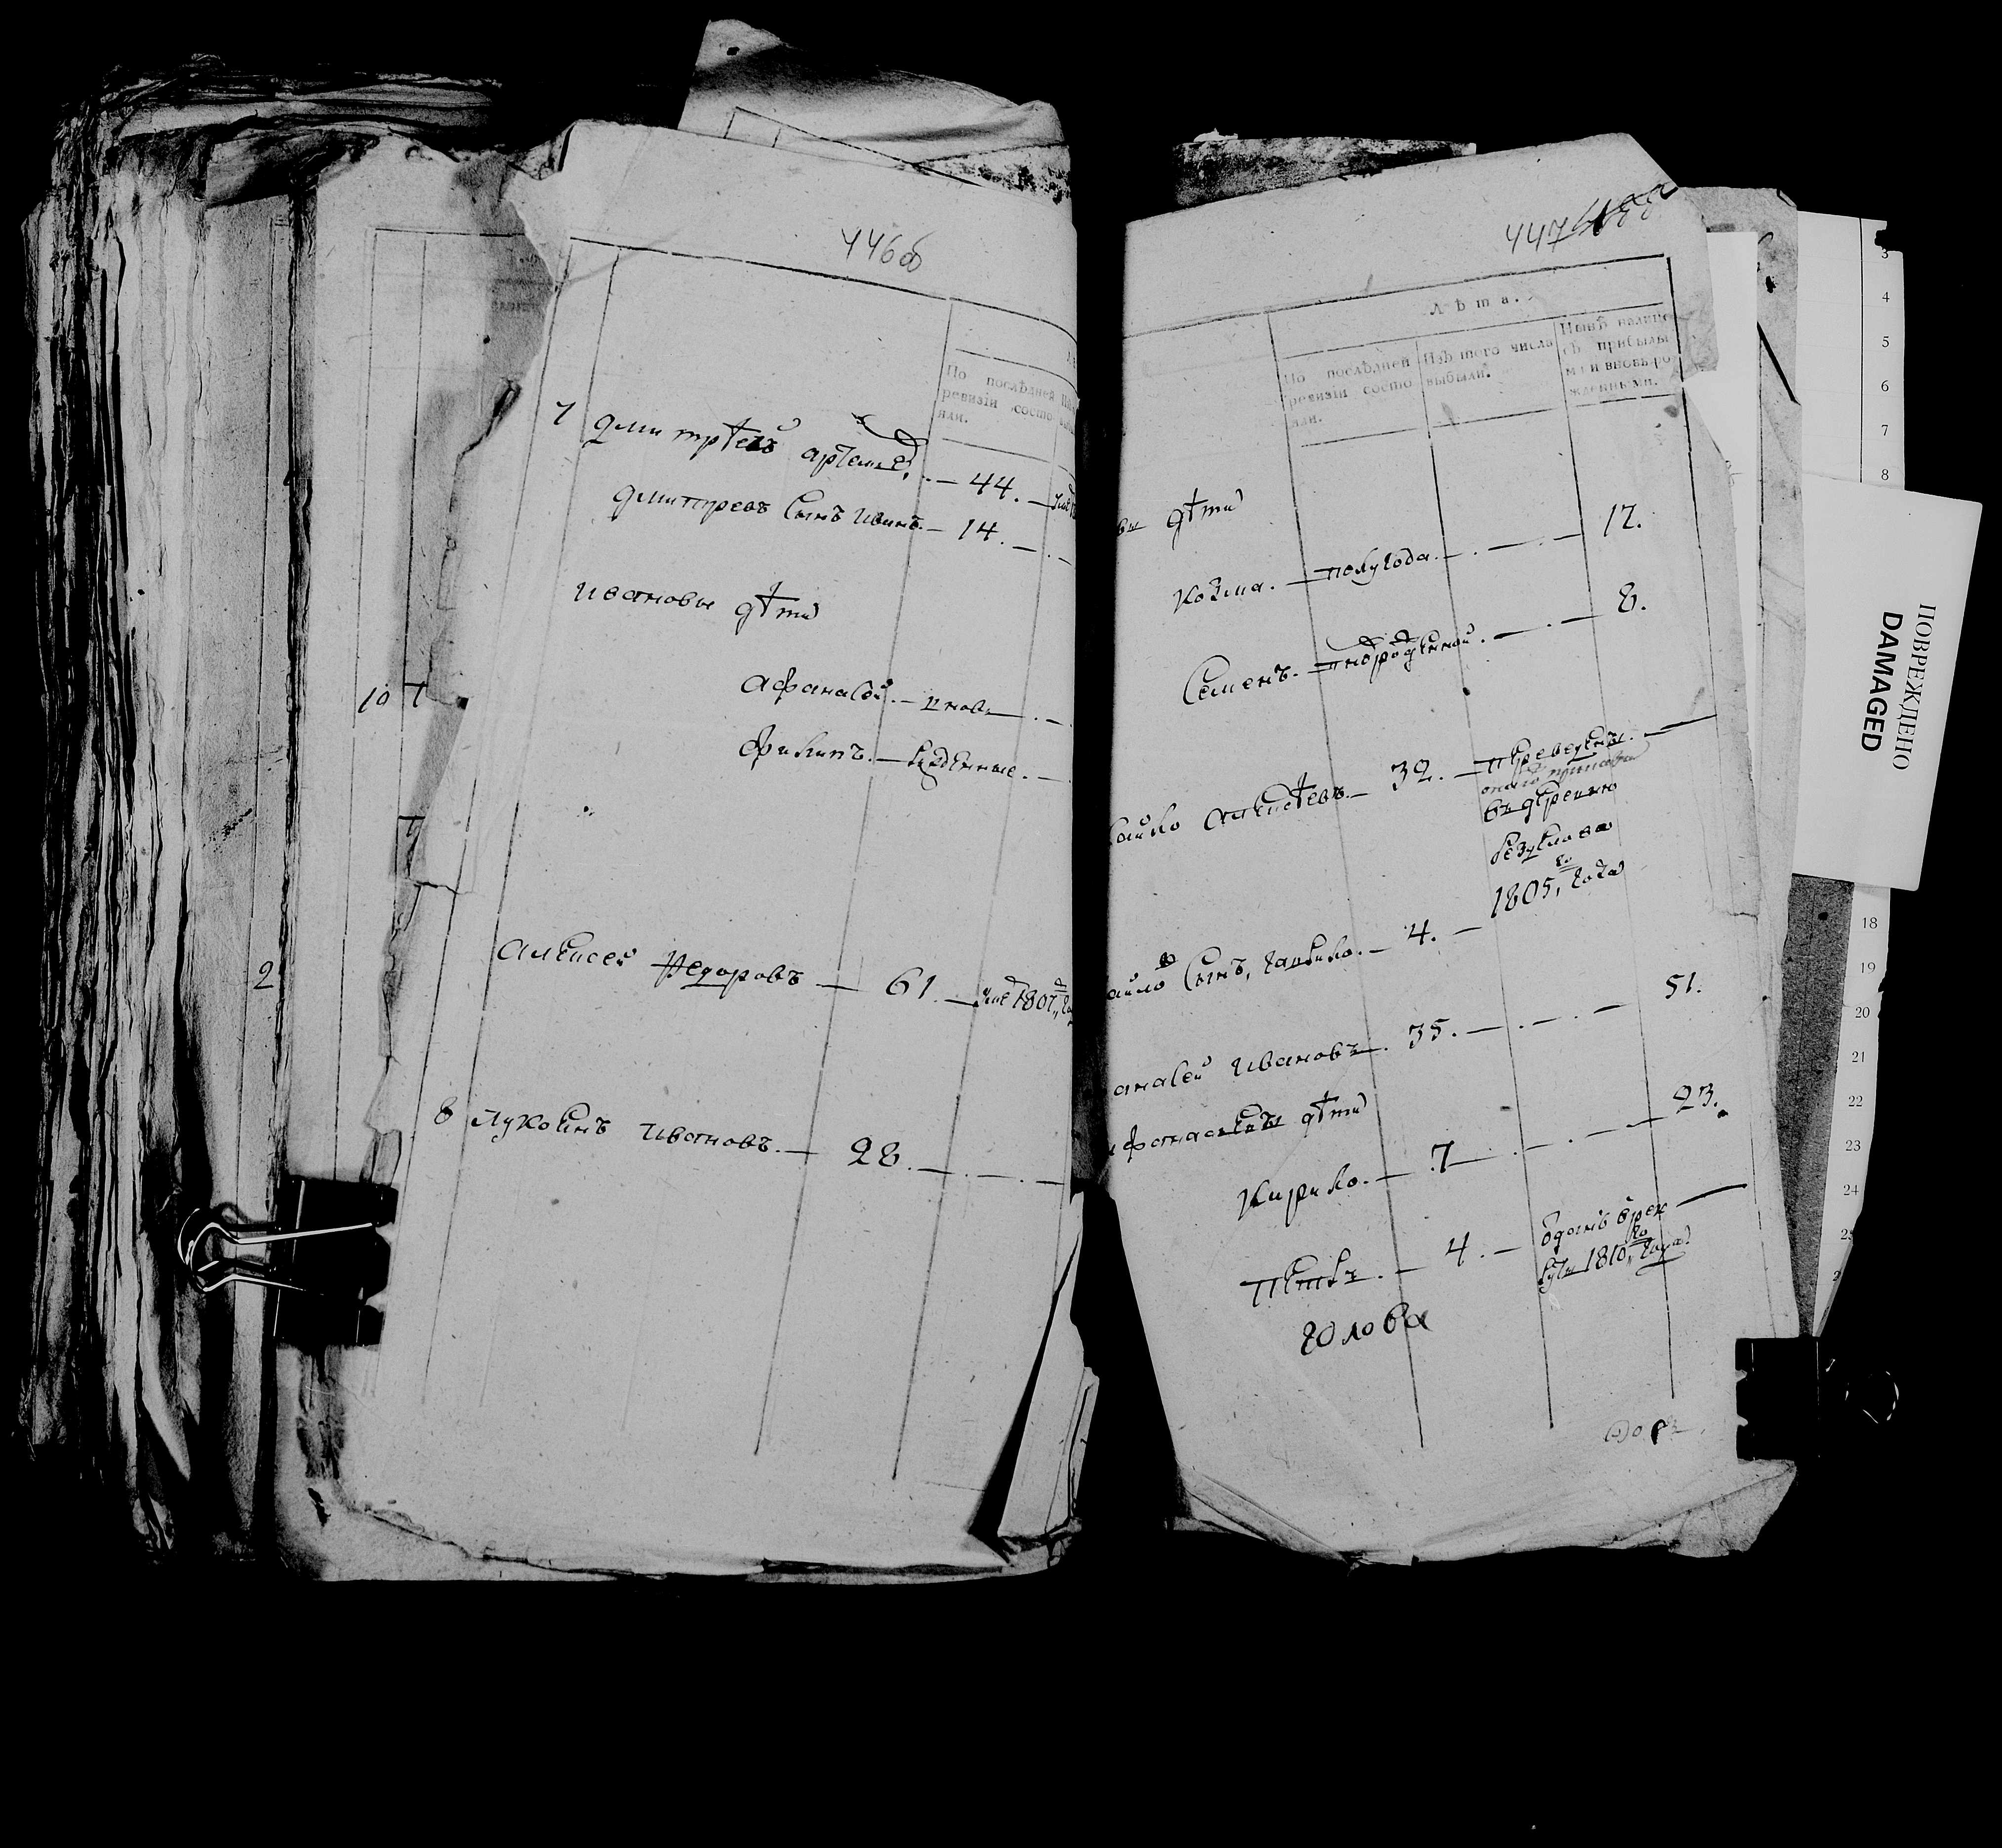 446об
По послѣдней
ревизіи состо
яли.
7 Дмитрѣй Артемье — 44. —
Дмитрревъ сынъ Иванъ — 14. —
Ивановы дѣти
Афанасей. — внов —
Филипъ. — рожденные. —
Алексей Федоровъ — 61. — умер 1807
8 Ивановъ. — 28. —
10
2
447
Лѣта.
По послѣдней
ревизіи состо
яли.
Изъ того числа
выбыли.
Нынѣ налицо
съ прибылы
ми и вновь ро
жденными.
вы дѣти
Козма. — полугода. — 17.
Семенъ. — — 8.
айло Алексѣевъ. — 32. — переведенъ. —
въ деревню
1805, го года
айло сынъ, Гаврило. — 4. —
анасей Ивановъ. 35. — 51.
Афанасьевы дѣти
Кирило. — 7 — 23.
Петръ. — 4. — отданъ врек
руты 1810, го года
Голова
ПОВРЕЖДЕНО
DAMAGED
3
4
5
6
7
8
18
19
20
21
22
23
24